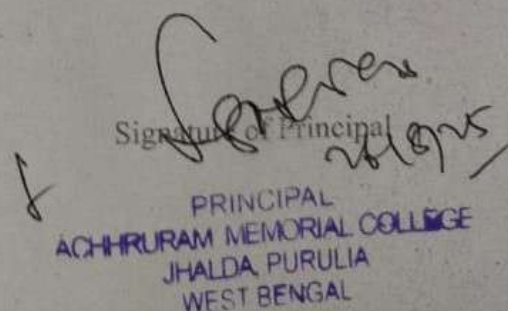 Signature of Principal
PRINCIPAL
ACHHRURAM MEMORIAL COLLEGE
JHALDA, PURULIA
WEST BENGAL